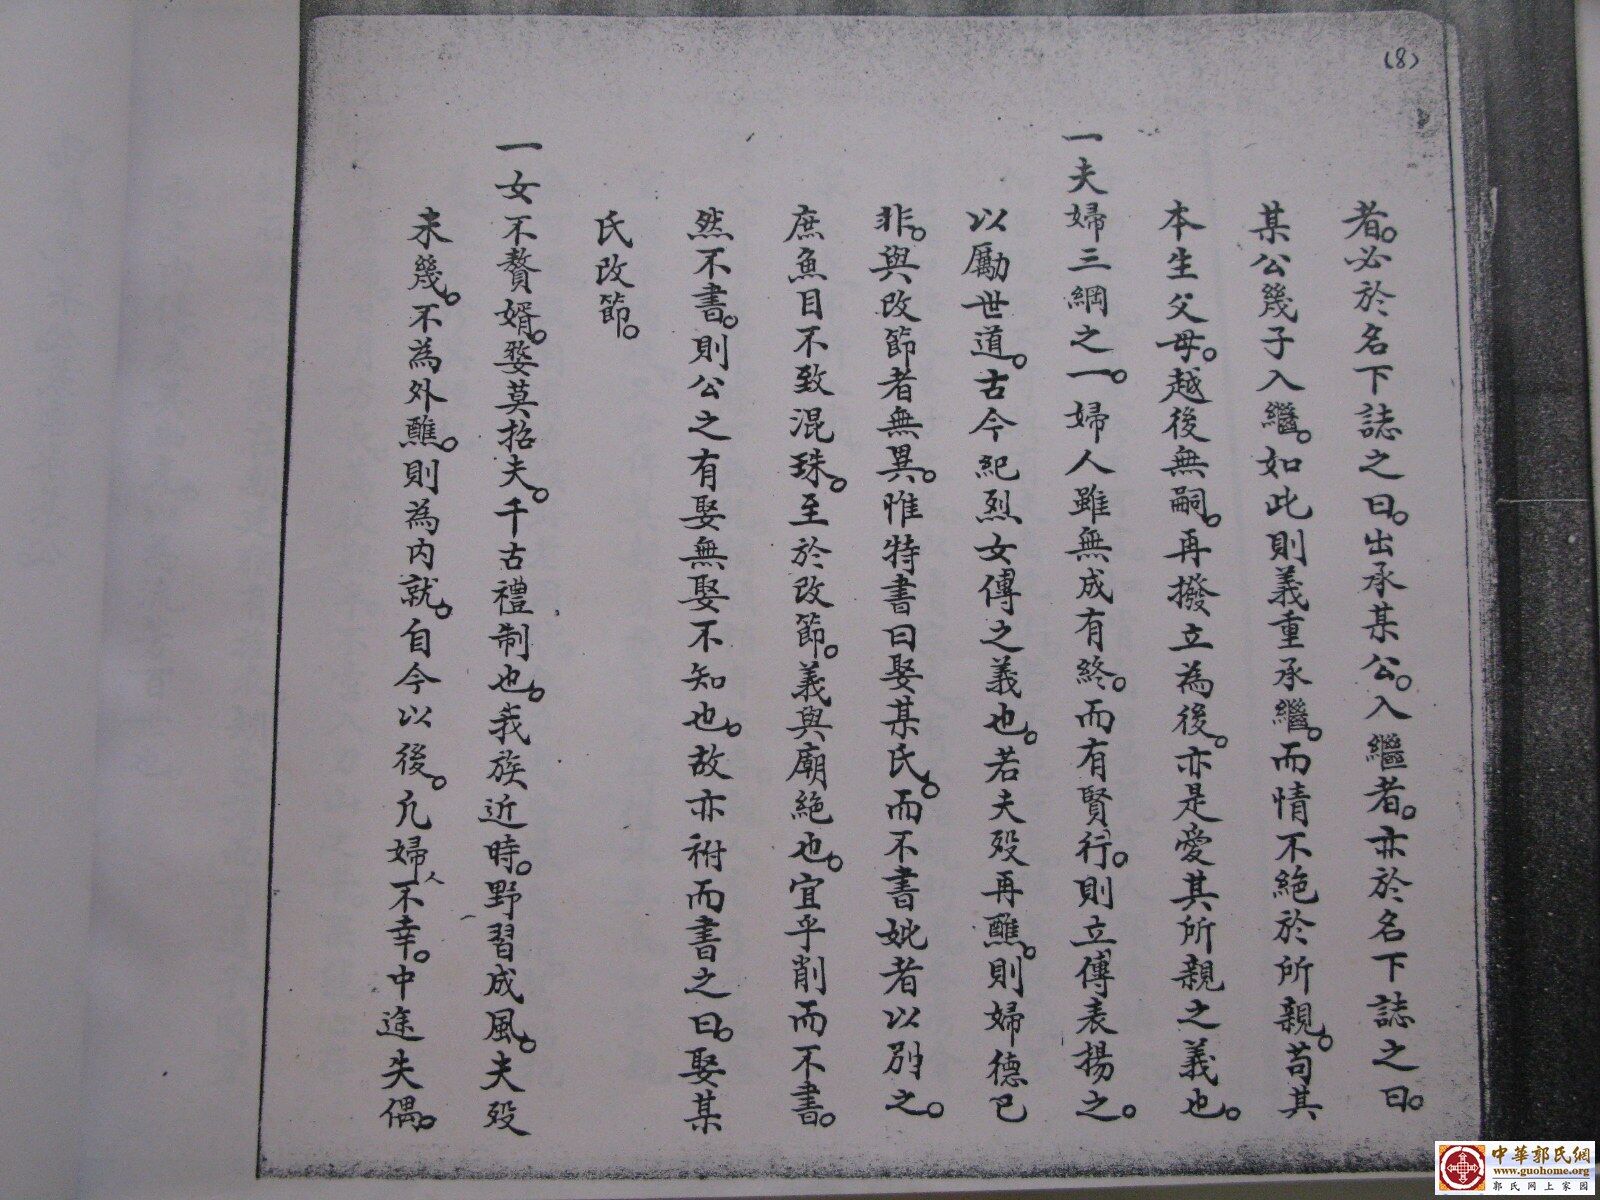 (8)
者。必於名下誌之曰。出承某公。入繼者。亦於名下誌之曰。
某公幾子入繼。如此則義重承繼。而情不絶於所親。苟其
本生父母。越後無嗣。再撥立為後。亦是愛其所親之義也。
一夫婦三綱之一。婦人雖無成有終。而有賢行。則立傳表揚之。
以勵世道。古今紀烈女傳之義也。若夫歿再醮。則婦德已
非。與改節者無異。惟特書曰娶某氏。而不書妣者以別之。
庶魚目不致混珠。至於改節。義與廟絶也。宜乎削而不書。
然不書。則公之有娶無娶不知也。故亦祔而書之曰。娶某
氏改節。
一女不贅婿。婺莫招夫。千古禮制也。我族近時。野習成風。夫歿
未幾。不為外醮。則為内就。自今以後。凡婦人不幸。中途失偶。
中華郭氏網
www.guohome.org
郭氏网上家园